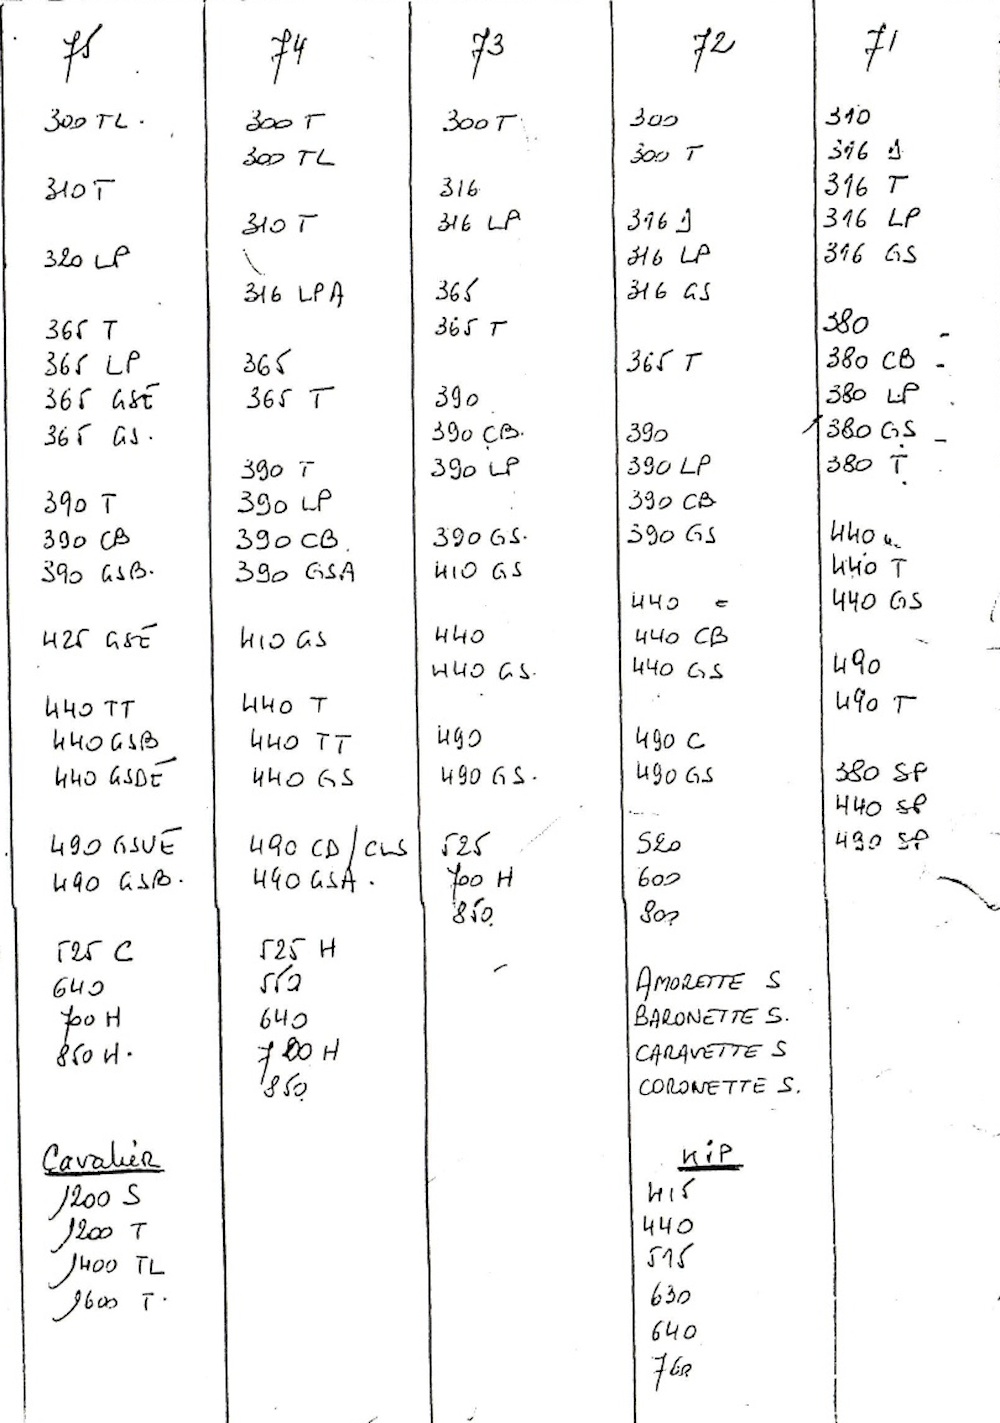 75
300 TL.
310 T
320 LP
365 T
365 LP
365 GSE
365 GS.
390 T
390 CB
390 GSB.
425 GSE
440 TT
440 GSB
440 GSDE
490 GSVE
490 GSB.
525 C
640
700 H
850 H.
Cavalier
1200 S
1200 T
1400 TL
1600 T.
74
300 T
300 TL
310 T
316 LPA
365
365 T
390 T
390 LP
390 CB.
390 GSA
410 GS
440 T
440 TT
440 GS
490 CD/CLS
490 GSA.
525 H
550
640
700 H
850
73
300 T
316
316 LP
365
365 T
390
390 CB.
390 LP
390 GS.
410 GS
440
440 GS.
490
490 GS.
525
700 H
850
72
300
300 T
316 J
316 LP
316 GS
365 T
390
390 LP
390 CB
390 GS
440
440 CB
440 GS
490 C
490 GS
520
600
800
AMORETTE S
BARONETTE S.
CARAVETTE S
CORONETTE S.
KIP
415
440
515
630
640
71
310
316 J
316 T
316 LP
316 GS
380
380 CB
380 LP
380 GS
380 T
440
440 T
440 GS
490
490 T
380 SP
440 SP
490 SP